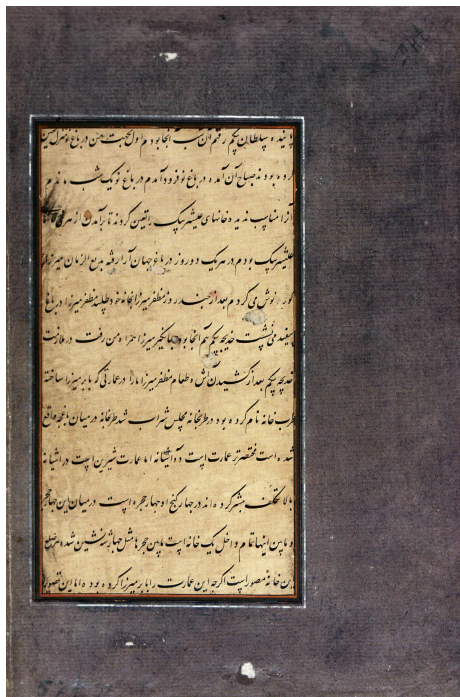 پاینده سلطان بیگم رفتم آن شب آنجا بودم اول بجهت من در باغ نو منزل تعیین
کرده بودند صباح آن آمده در باغ نو فرود آمدم در باغ نو یک شب ماندم
آنرا مناسب ندیده خانهای علیشیر بیک را تعیین کردند تا برآمدن از هری در خانهای
علیشیر بیک بودم در هر یک دو روز در باغ جهان آرا رفته بدیع الزمان میرزا را
کورنوش می کردم بعد از چند روز مظفر میرزا بخانه خود طلبید مظفر میرزا در باغ
سفید می نشست خدیجه بیکم هم آنجا بود جهانگیر میرزا همراه من رفت در ملازمت
خدیجه بیکم بعد از کشیدن آش و طعام مظفر میرزا ما را در عمارتی که بابر میرزا ساخته
طرب خانه نام کرده بود در طربخانه مجلس شراب شد طربخانه در میان باغچه واقع
شده است مختصرتر عمارت است دو آشیانه اما عمارت شیرین است در آشیانه
بالا تکلف بیشتر کرده اند در چهار کنج او چهار حجره است در میان این چهار حجره
و مابین اینها تمام داخل یک خانه است مابین حجرها مثل چهار شه نشین شده هر ضلع
این خانه مصور است اگرچه این عمارت را بابر میرزا کرده بوده اما این تصویر